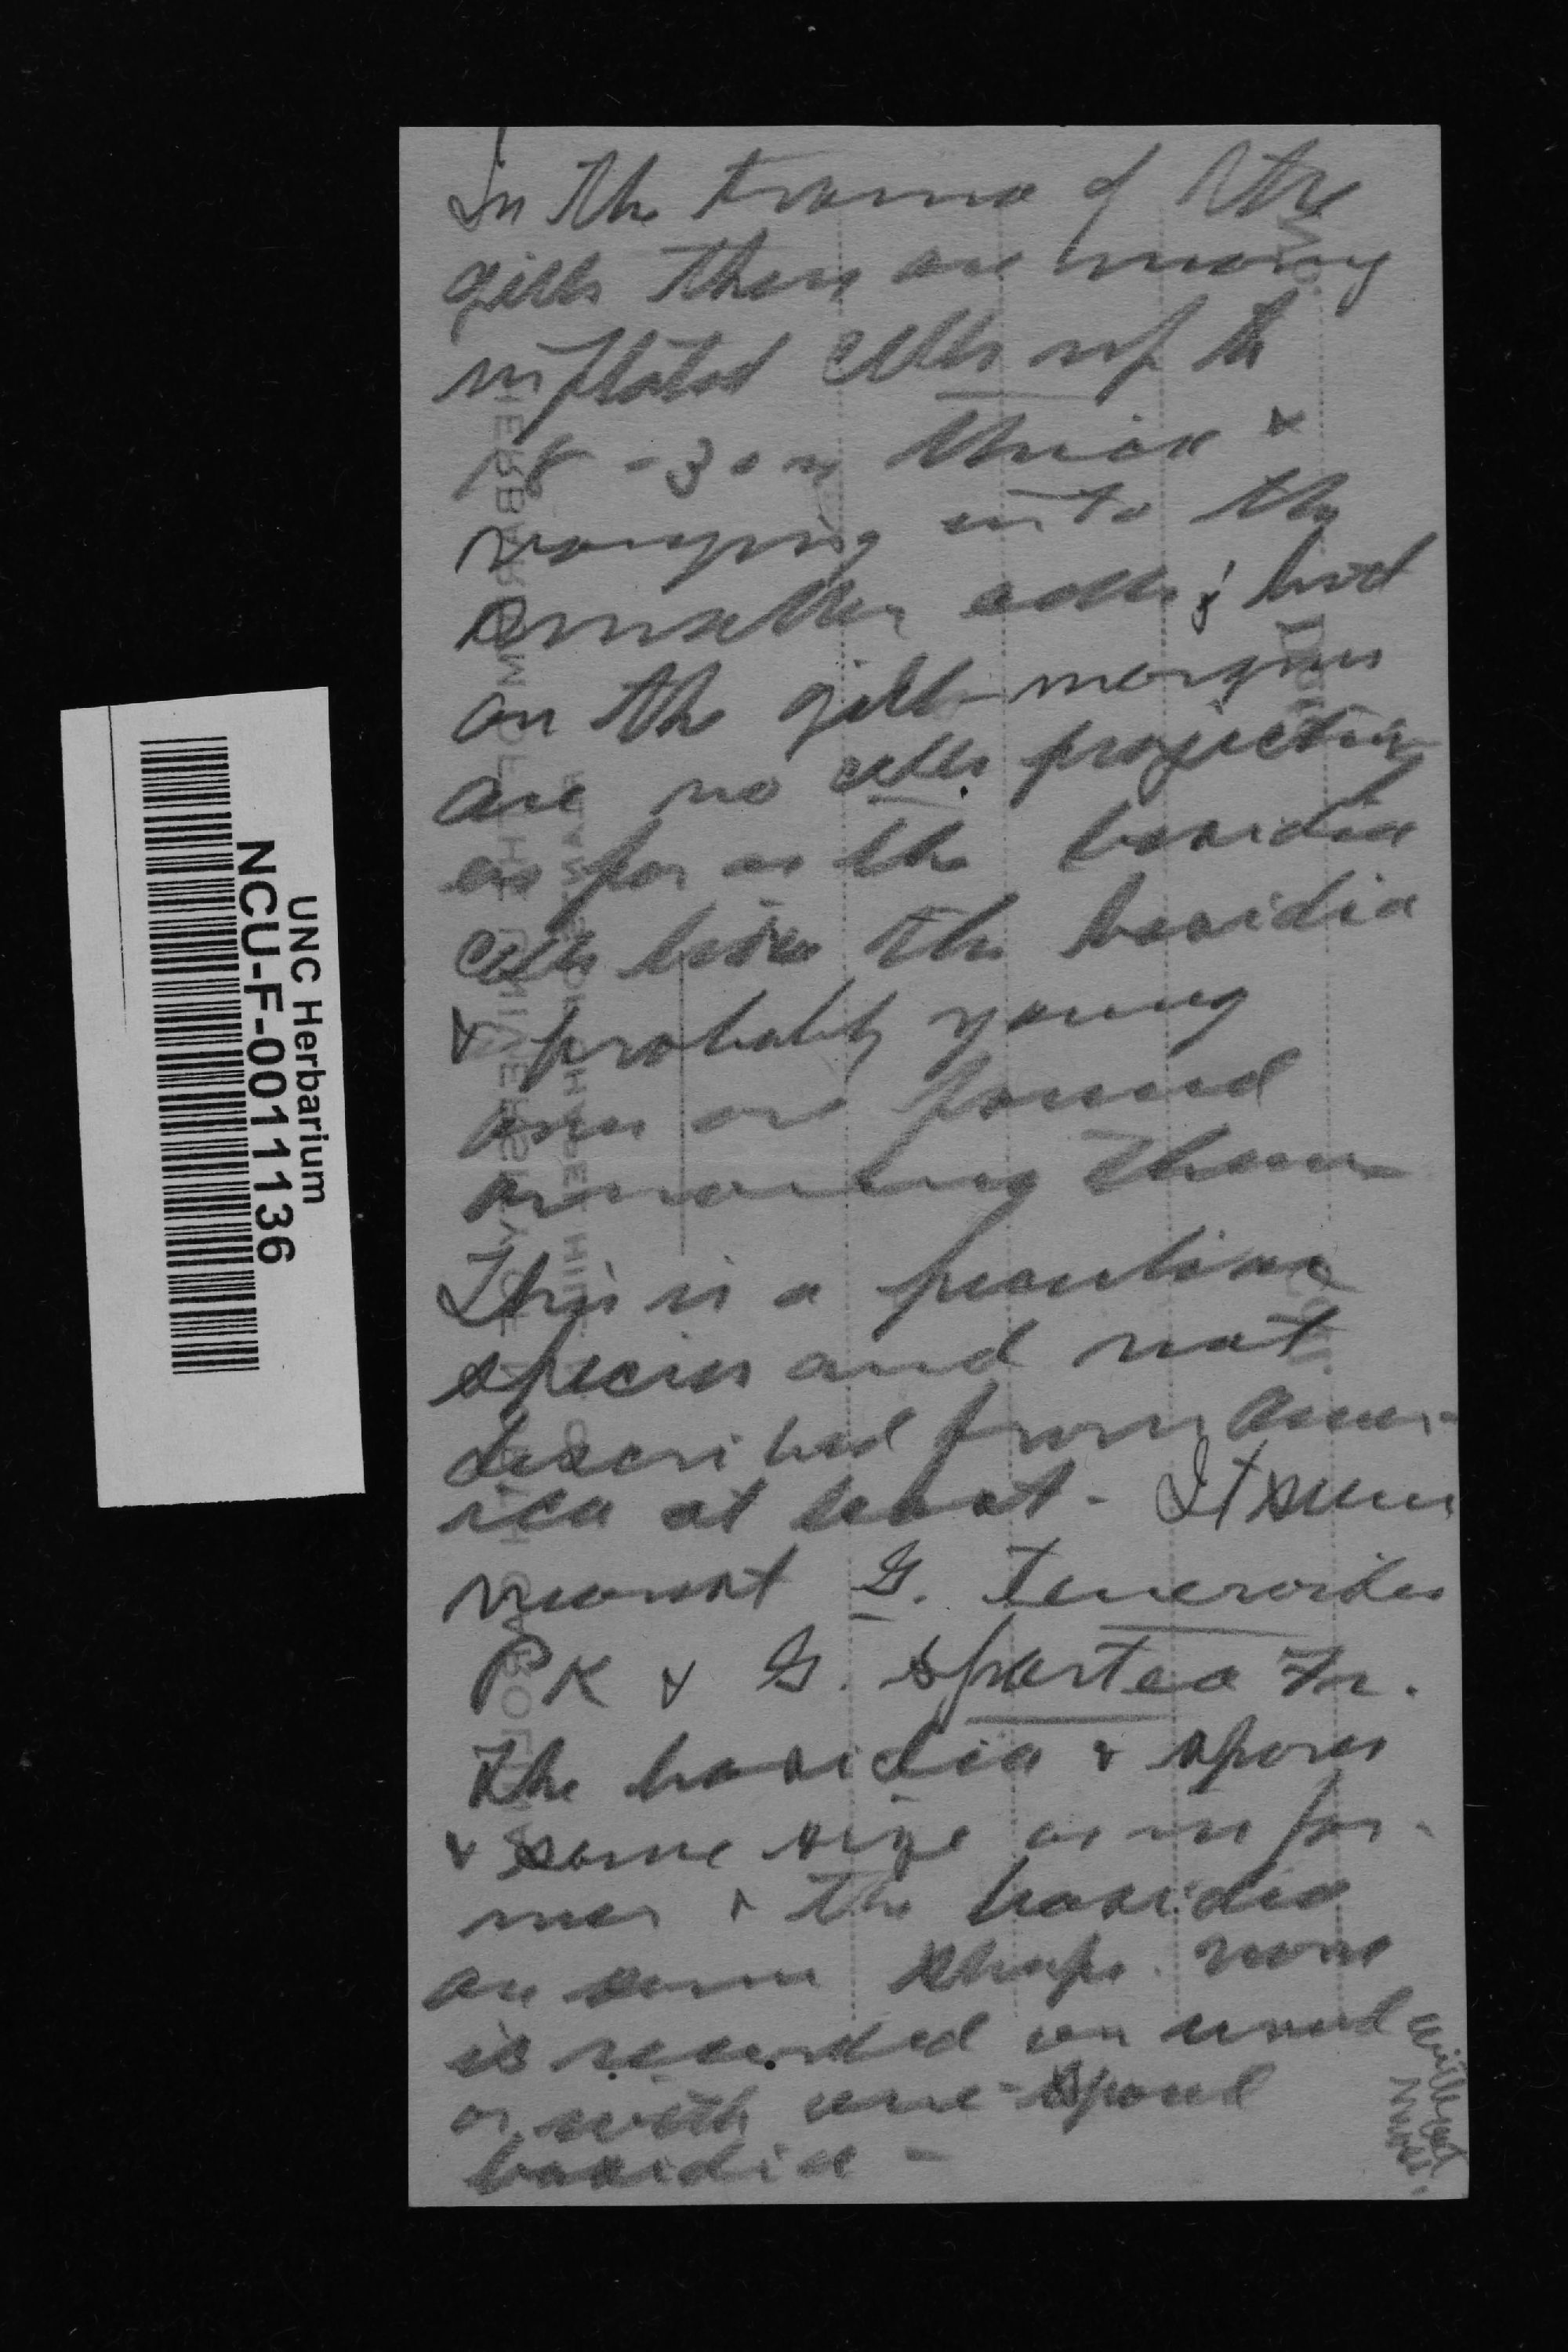 In the trama of the
gills there are many
inflated cells up to
18-30μ thick &
varying into the
smaller cells; but
on the gill-margins
are no cells projecting
as far as the basidia
cells like the basidia
& probably young
ones are found
among them
This is a peculiar
species and not
described from Amer-
ica at least. It seems
nearest G. teneroides
Pk & G. spartea Fr.
The basidia & spores
& same size as in for-
mer & the basidia
are same shape. none
is recorded on wood
or with one-spored
basidia -
without
UNC Herbarium
NCU-F-0011136